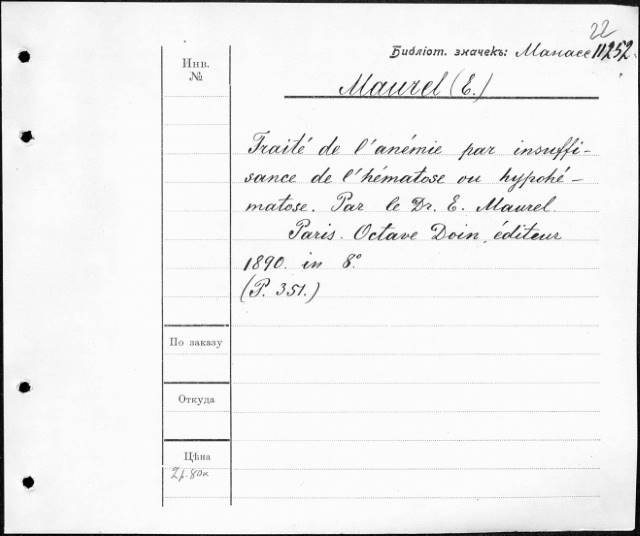 22
Библіот. значекъ: Манасс 11252.
Инв.
№
Maurel (E.)
Traité de l'anémie par insuffi-
sance de l'hématose ou hypohé-
matose. Par le Dr. E. Maurel
Paris. Octave Doin, éditeur
1890. in 8°
(P. 351.)
По заказу
Откуда
Цѣна
2р.80к